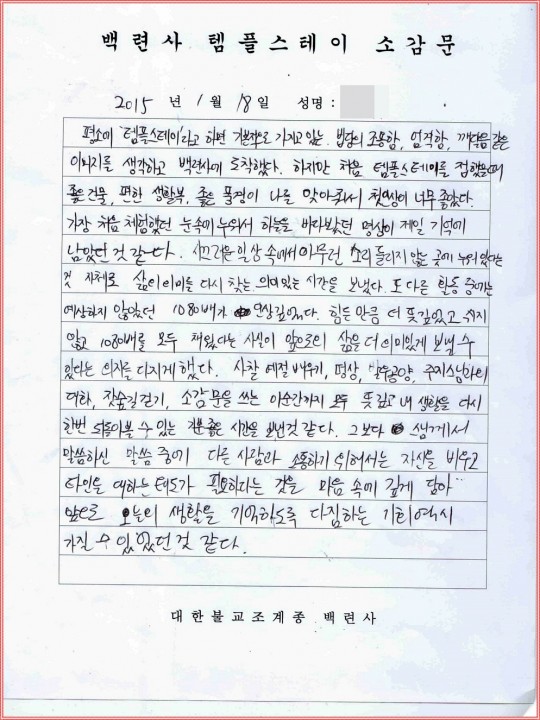 백련사 템플스테이 소감문
2015 년 1 월 18 일 성명 :
평소에 '템플스테이'라고 하면 기본적으로 가지고 있는 법당의 조용함, 엄격함, 깨달음 같은
이미지를 생각하고 백련사에 도착했다. 하지만 처음 템플스테이를 접했을때
좋은 건물, 편한 생활복, 좋은 풍경이 나를 맞아줘서 첫인상이 너무 좋았다.
가장 처음 체험했던 눈속에 누워서 하늘을 바라봤던 명상이 제일 기억에
남았던 것 같다. 시끄러운 일상 속에서 아무런 소리 들리지 않는 곳에 누워 있다는
것 자체로 삶의 의미를 다시 찾는 의미있는 시간을 보냈다. 또 다른 활동 중에는
예상하지 않았던 1080배가 인상깊었다. 힘든 만큼 더 뜻깊었고 쉬지
않고 1080배를 모두 채웠다는 사실이 앞으로의 삶을 더 의미있게 보낼 수
있다는 의지를 다지게 했다. 사찰 예절 배우기, 명상, 발우공양, 주지스님과의
대화, 잣숲길 걷기, 소감문을 쓰는 이순간까지 모두 뜻깊고 내 생활을 다시
한번 되돌아볼 수 있는 기분 좋은 시간을 보낸것 같다. 그보다 스님께서
말씀하신 말씀 중에 다른 사람과 소통하기 위해서는 자신을 비우고
타인을 대하는 태도가 필요하다는 것을 마음 속에 깊게 담아
앞으로 오늘의 생활을 기억하도록 다짐하는 기회 역시
가질 수 있었던 것 같다.
대한불교조계종 백련사